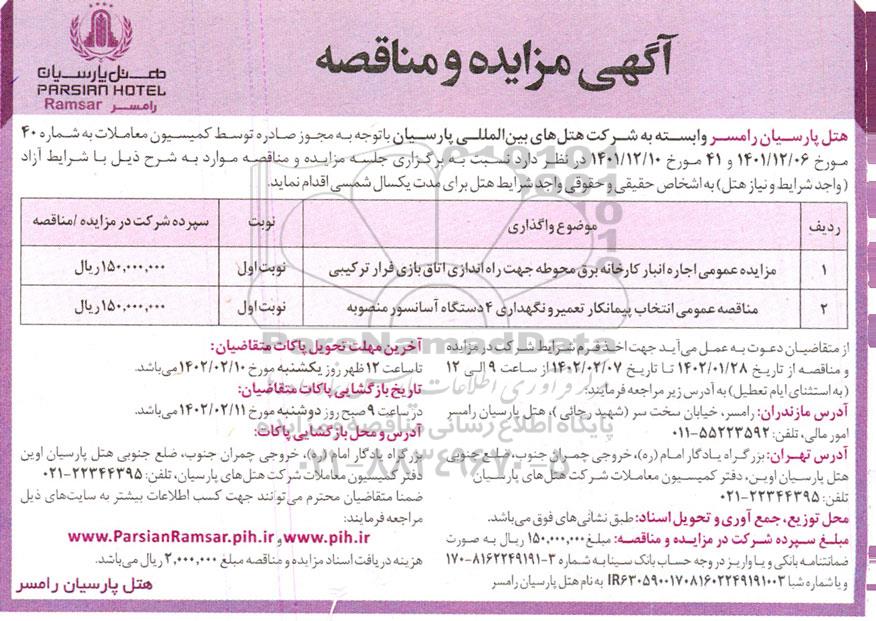 آگهی مزایده و مناقصه
هتل پارسیان
PARSIAN HOTEL
Ramsar رامسر
هتل پارسیان رامسر وابسته به شرکت هتل‌های بین‌المللی پارسیان باتوجه به مجوز صادره توسط کمیسیون معاملات به شماره ۴۰
مورخ ۱۴۰۱/۱۲/۰۶ و ۴۱ مورخ ۱۴۰۱/۱۲/۱۰ در نظر دارد نسبت به برگزاری جلسه مزایده و مناقصه موارد به شرح ذیل با شرایط آزاد
(واجد شرایط و نیاز هتل) به اشخاص حقیقی و حقوقی واجد شرایط هتل برای مدت یکسال شمسی اقدام نماید.
ردیف موضوع واگذاری نوبت سپرده شرکت در مزایده /مناقصه
۱ مزایده عمومی اجاره انبار کارخانه برق محوطه جهت راه اندازی اتاق بازی فرار ترکیبی نوبت اول ۱۵۰,۰۰۰,۰۰۰ ریال
۲ مناقصه عمومی انتخاب پیمانکار تعمیر و نگهداری ۴ دستگاه آسانسور منصوبه نوبت اول ۱۵۰,۰۰۰,۰۰۰ ریال
از متقاضیان دعوت به عمل می‌آید جهت اخذ فرم شرایط شرکت در مزایده
و مناقصه از تاریخ ۱۴۰۲/۰۱/۲۸ تا تاریخ ۱۴۰۲/۰۲/۰۷ از ساعت ۹ الی ۱۲
(به استثنای ایام تعطیل) به آدرس زیر مراجعه فرمایند:
آدرس مازندران: رامسر، خیابان سخت سر (شهید رجائی)، هتل پارسیان رامسر
امور مالی، تلفن: ۵۵۲۲۳۵۹۲-۰۱۱
آدرس تهران: بزرگراه یادگار امام (ره)، خروجی چمران جنوب، ضلع جنوبی
هتل پارسیان اوین، دفتر کمیسیون معاملات شرکت هتل‌های پارسیان
تلفن: ۲۲۳۴۴۳۹۵-۰۲۱
محل توزیع، جمع آوری و تحویل اسناد: طبق نشانی‌های فوق می‌باشد.
مبلغ سپرده شرکت در مزایده و مناقصه: مبلغ ۱۵۰,۰۰۰,۰۰۰ ریال به صورت
ضمانتنامه بانکی و یا واریز در وجه حساب بانک سینا به شماره ۳-۸۱۶۲۲۴۹۱۹۱-۱۷۰
و یا شماره شبا IR۶۳۰۵۹۰۰۱۷۰۸۱۶۰۲۲۴۹۱۹۱۰۰۳ به نام هتل پارسیان رامسر
آخرین مهلت تحویل پاکات متقاضیان:
تا ساعت ۱۲ ظهر روز یکشنبه مورخ ۱۴۰۲/۰۲/۱۰ می‌باشد.
تاریخ بازگشایی پاکات متقاضیان:
در ساعت ۹ صبح روز دوشنبه مورخ ۱۴۰۲/۰۲/۱۱ می‌باشد.
آدرس و محل بازگشایی پاکات:
بزرگراه یادگار امام (ره)، خروجی چمران جنوب، ضلع جنوبی هتل پارسیان اوین
دفتر کمیسیون معاملات شرکت هتل‌های پارسیان، تلفن: ۲۲۳۴۴۳۹۵-۰۲۱
ضمنا متقاضیان محترم می‌توانند جهت کسب اطلاعات بیشتر به سایت‌های ذیل
مراجعه فرمایند:
www.pih.ir و www.ParsianRamsar.pih.ir
هزینه دریافت اسناد مزایده و مناقصه مبلغ ۲,۰۰۰,۰۰۰ ریال می‌باشد.
هتل پارسیان رامسر
ParsNamadData
پایگاه اطلاع رسانی مناقصه و مزایده
۰۲۱-۸۸۳۴۹۶۷۰-۵